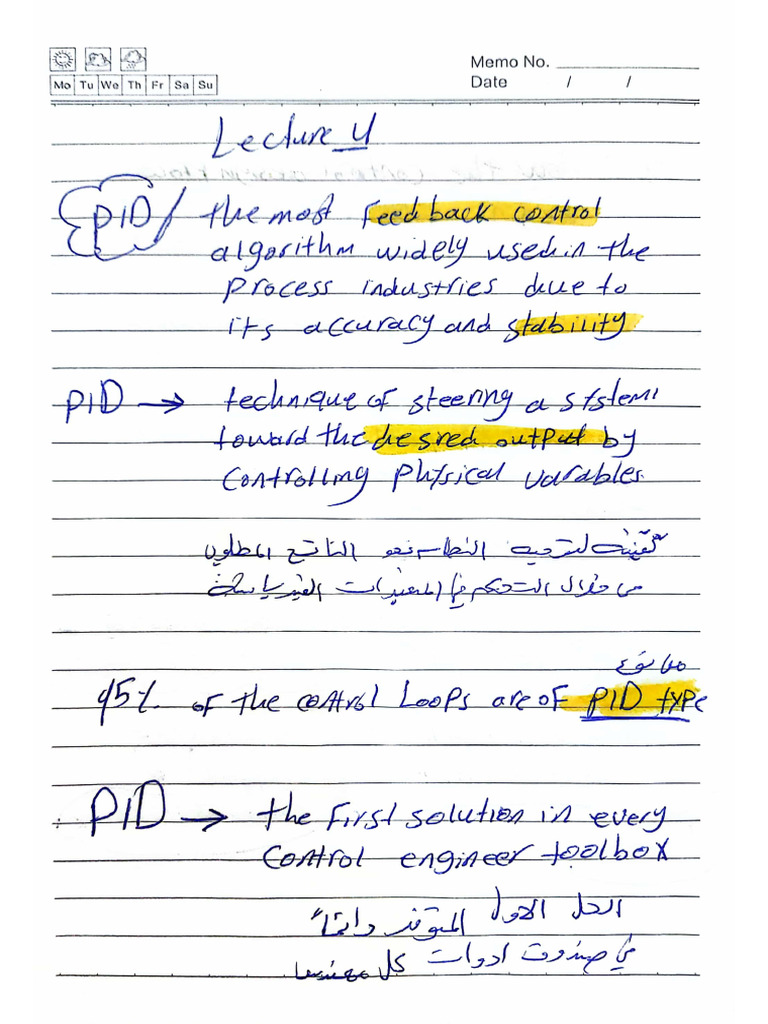 Memo No.
Mo Tu We Th Fr Sa Su
Date / /
Lecture 4
PID the most Feedback control
algorithm widely used in the
process industries due to
its accuracy and stability
PID → technique of steering a system
toward the desired output by
controlling physical variables.
تقنية لتوجيه النظام نحو الناتج المطلوب
من خلال التحكم في المتغيرات الفيزيائية
من نوع
95% of the control Loops are of PID type
PID → the First solution in every
control engineer toolbox
الحل الاول المتوفر دائماً
في صندوق ادوات كل مهندس